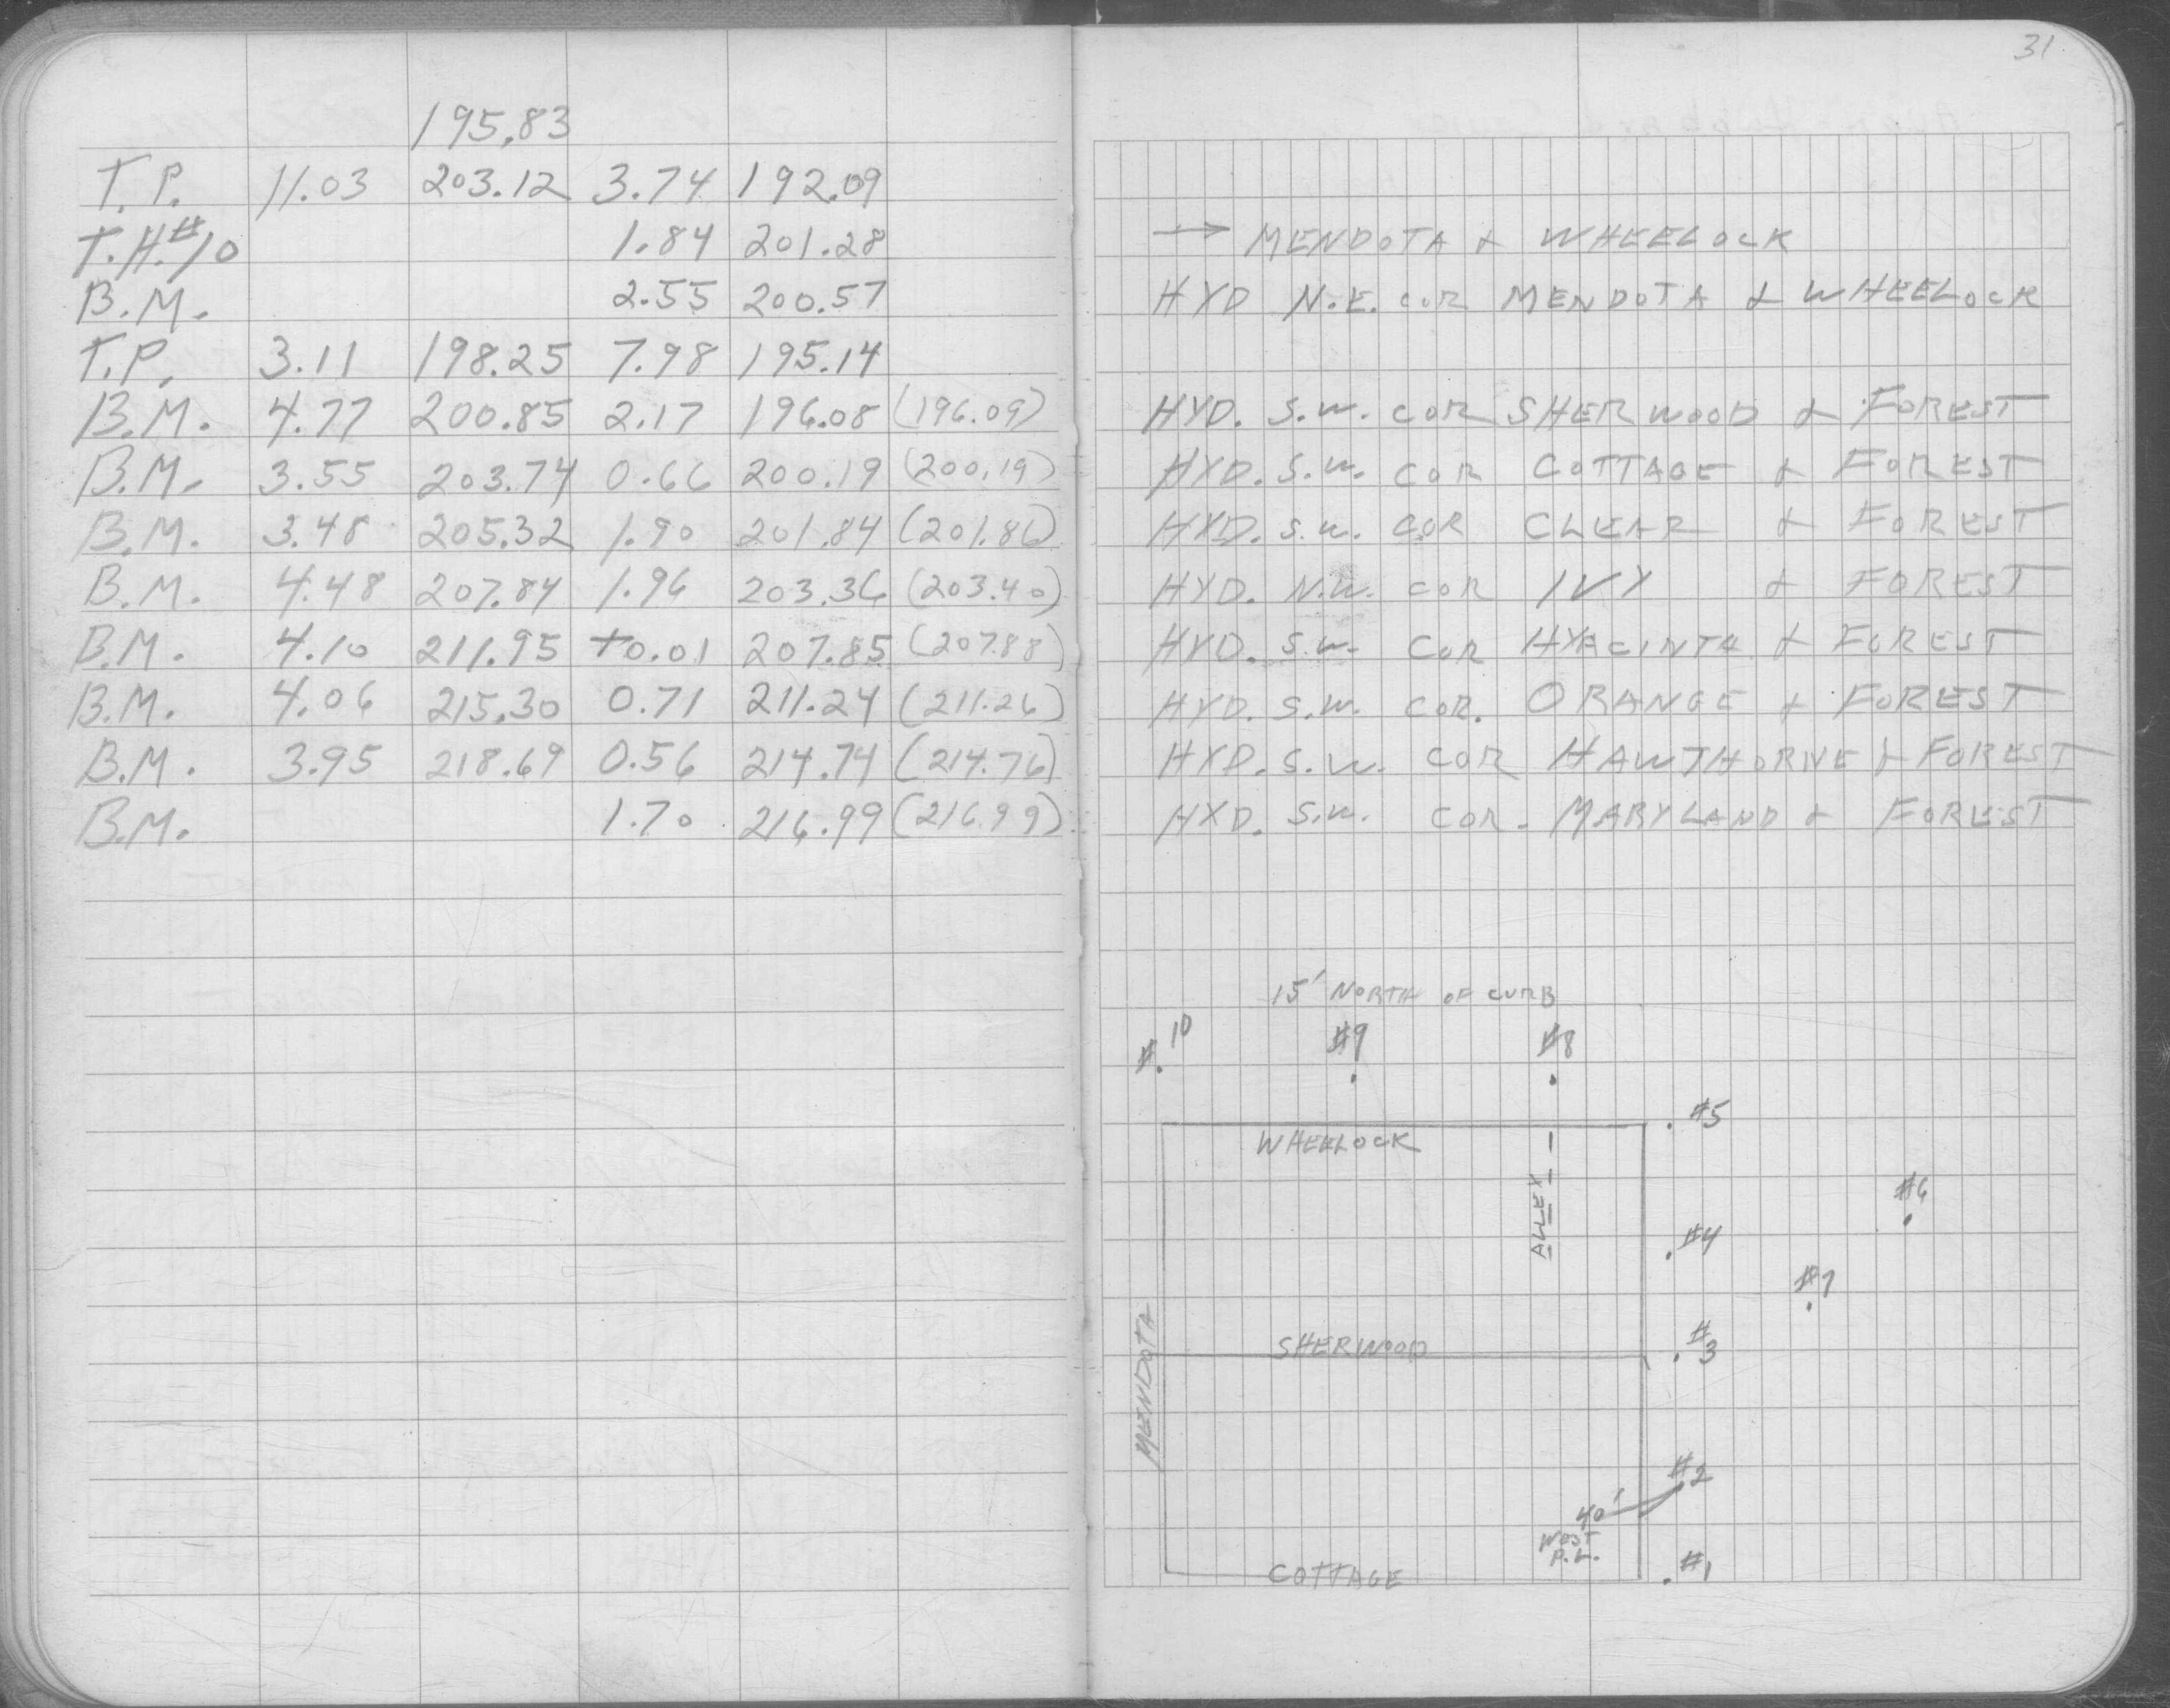 31
195.83
T.P. 11.03 203.12 3.74 192.09
T.H.#10 1.84 201.28 → MENDOTA & WHEELOCK
B.M. 2.55 200.57 HYD N.E. COR MENDOTA & WHEELOCK
T.P. 3.11 198.25 7.98 195.14
B.M. 4.77 200.85 2.17 196.08 (196.09) HYD. S.W. COR SHERWOOD & FOREST
B.M. 3.55 203.74 0.66 200.19 (200.19) HYD. S.W. COR COTTAGE & FOREST
B.M. 3.48 205.32 1.90 201.84 (201.86) HYD. S.W. COR CLEAR & FOREST
B.M. 4.48 207.84 1.96 203.36 (203.40) HYD. N.W. COR IVY & FOREST
B.M. 4.10 211.95 +0.01 207.85 (207.88) HYD. S.W. COR HYACINTH & FOREST
B.M. 4.06 215.30 0.71 211.24 (211.26) HYD. S.W. COR. ORANGE & FOREST
B.M. 3.95 218.69 0.56 214.74 (214.76) HYD. S.W. COR HAWTHORNE & FOREST
B.M. 1.70 216.99 (216.99) HYD. S.W. COR. MARYLAND & FOREST
15' NORTH OF CURB
#10 #9 #8
#5
WHEELOCK
ALLEY
#6
#4
#7
#3
SHERWOOD
MENDOTA
#2
40'
WEST
P.L.
#1
COTTAGE